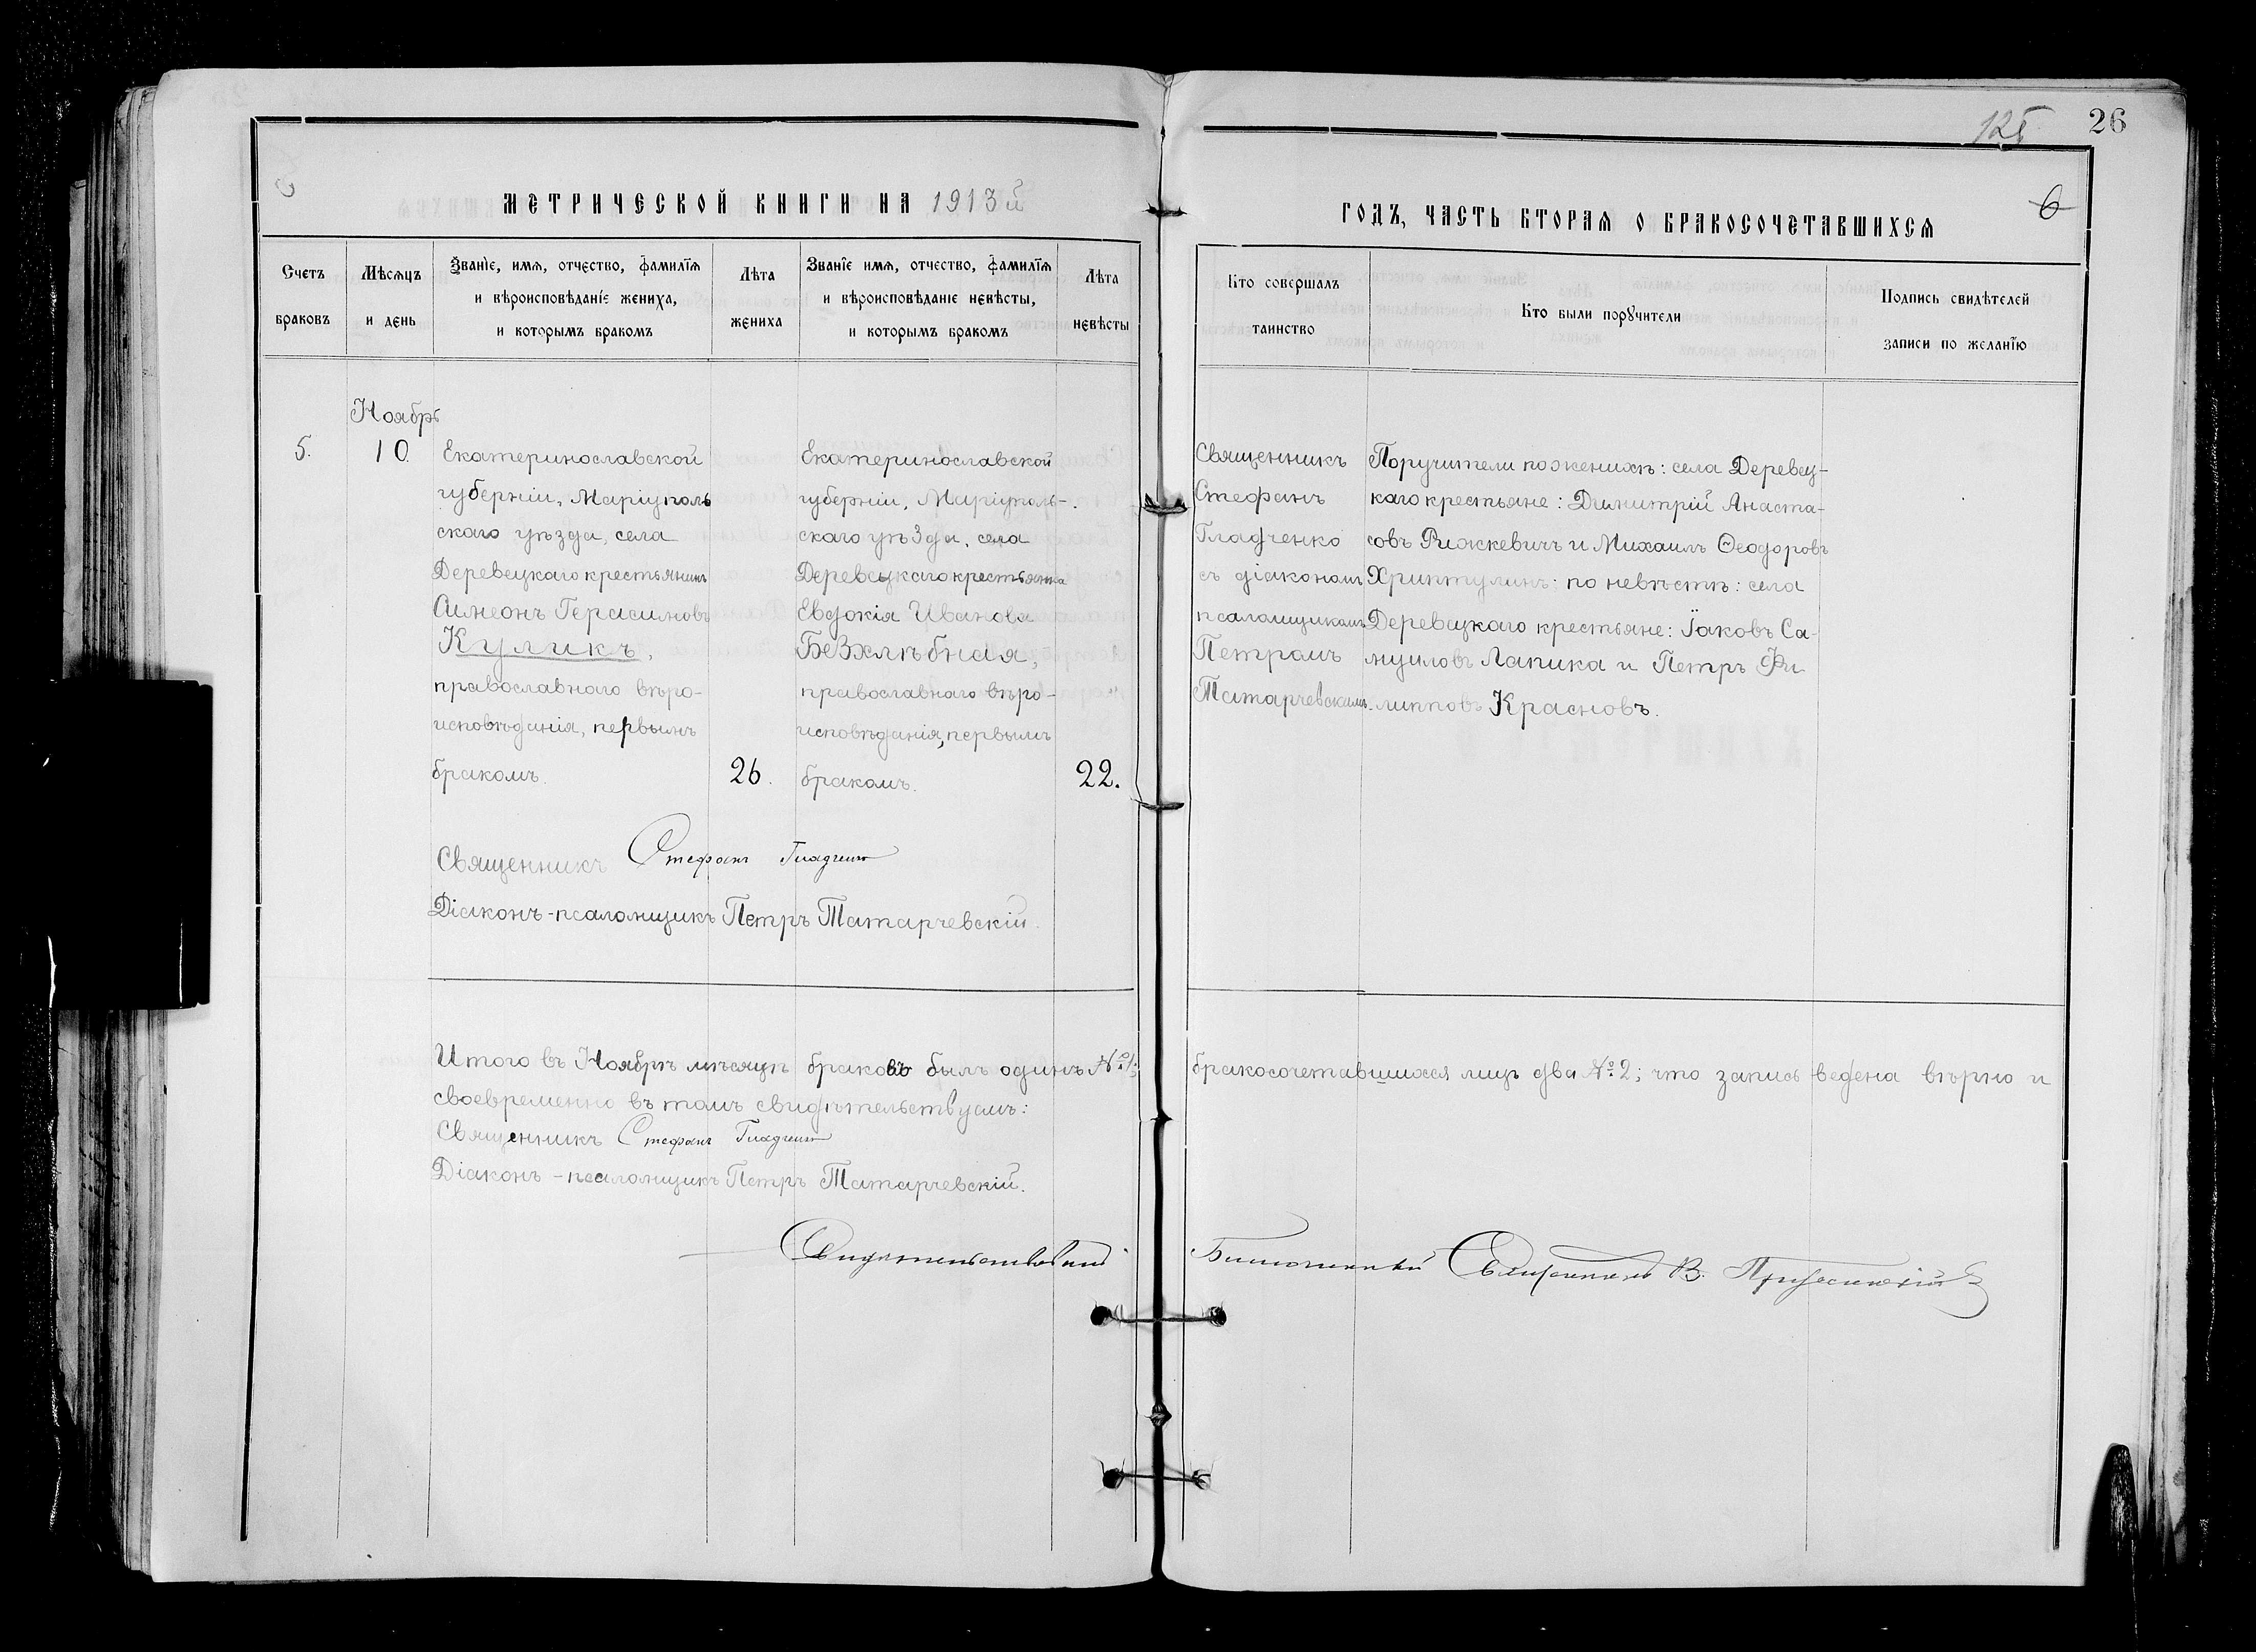 26
125
МЕТРИЧЕСКОЙ КНИГИ НА 1913й
ГОДЪ, ЧАСТЬ ВТОРАЯ О БРАКОСОЧЕТАВШИХСЯ
6
Счетъ браковъ
Мѣсяцъ и день
Званїе, имя, отчество, фамилїя
и вѣроисповѣданїе жениха,
и которымъ бракомъ
Лѣта
жениха
Званїе имя, отчество, фамилїя
и вѣроисповѣданїе невѣсты,
и которымъ бракомъ
Лѣта
невѣсты
Кто совершалъ
таинство
Кто были поручители
Подпись свидѣтелей
записи по желанїю
Ноябрь
5.
10.
Екатеринославской
губерніи, Маріуполь
скаго уѣзда, села
Деревецкаго крестьянинъ
Симеонъ Герасимовъ
Куликъ,
православнаго вѣро-
исповѣданія, первымъ
бракомъ.
26.
Екатеринославской
губерніи, Маріуполь-
скаго уѣзда, села
Деревецкаго крестьянка
Евдокія Иванова
Безхлѣбная,
православнаго вѣро-
исповѣданія, первымъ
бракомъ.
22.
Священникъ
Стефанъ
Гладченко
съ діакономъ
псаломщикомъ
Петромъ
Татарчевскимъ.
Поручители по женихѣ: села Деревец-
каго крестьяне: Димитрій Анаста-
совъ Рижкевичъ и Михаилъ Ѳеодоровъ
Хриптулинъ: по невѣстѣ: села
Деревецкаго крестьяне: Іаковъ Са-
муиловъ Лапика и Петръ Фи
липповъ Красновъ.
Священникъ Стефанъ Гладченко
Діаконъ-псаломщикъ Петръ Татарчевскій.
Итого въ Ноябрѣ мѣсяцѣ браковъ былъ одинъ №1; бракосочетавшихся лицъ два №2; что запись ведена вѣрно и
своевременно въ томъ свидѣтельствуемъ:
Священникъ Стефанъ Гладченко
Діаконъ-псаломщикъ Петръ Татарчевскій.
Свидетельствовалъ Благочинный Священникъ В.